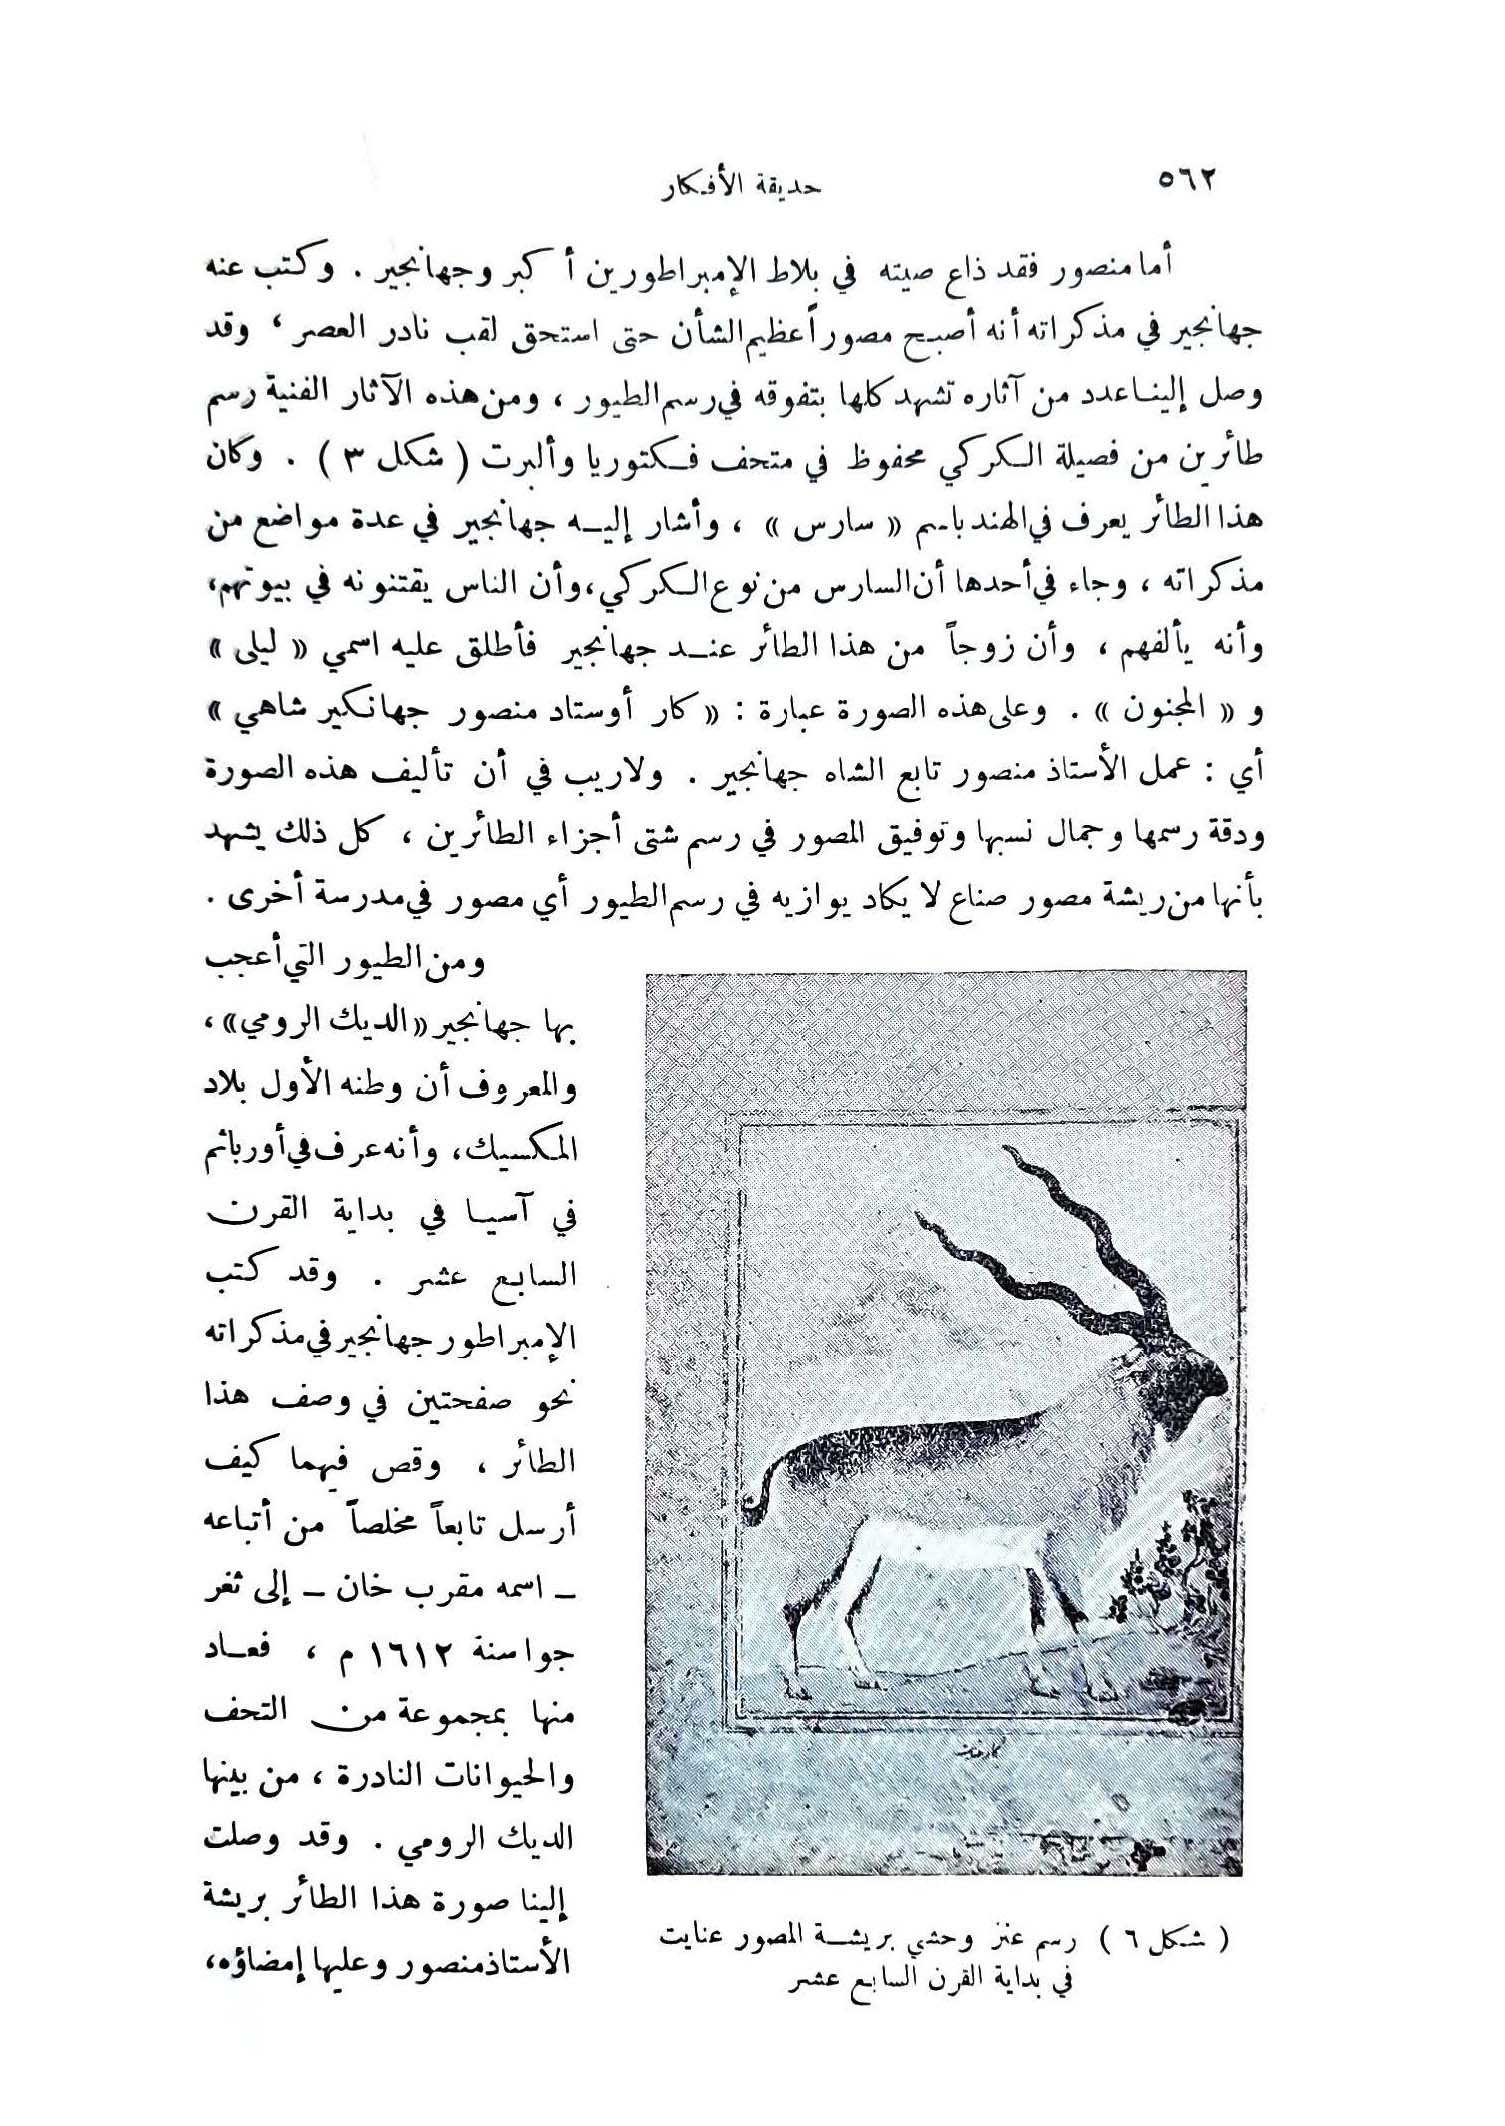 ٥٦٢
حديقة الأفكار
أما منصور فقد ذاع صيته في بلاط الإمبراطورين أكبر وجهانجير . وكتب عنه
جهانجير في مذكراته أنه أصبح مصوراً عظيم الشأن حتى استحق لقب نادر العصر ، وقد
وصل إلينا عدد من آثاره تشهد كلها بتفوقه في رسم الطيور ، ومن هذه الآثار الفنية رسم
طائرين من فصيلة الكركي محفوظ في متحف فكتوريا وألبرت ( شكل ٣ ) . وكان
هذا الطائر يعرف في الهند باسم « سارس » ، وأشار إليه جهانجير في عدة مواضع من
مذكراته ، وجاء في أحدها أن السارس من نوع الكركي، وأن الناس يقتنونه في بيوتهم،
وأنه يألفهم ، وأن زوجاً من هذا الطائر عند جهانجير فأطلق عليه اسمي « ليلى »
و « المجنون » . وعلى هذه الصورة عبارة : « كار أوستاد منصور جهانكير شاهي »
أي : عمل الأستاذ منصور تابع الشاه جهانجير . ولا ريب في أن تأليف هذه الصورة
ودقة رسمها وجمال نسبها وتوفيق المصور في رسم شتى أجزاء الطائرين ، كل ذلك يشهد
بأنها من ريشة مصور صناع لا يكاد يوازيه في رسم الطيور أي مصور في مدرسة أخرى .
ومن الطيور التي أعجب
بها جهانجير «الديك الرومي» ،
والمعروف أن وطنه الأول بلاد
المكسيك، وأنه عرف في أوربا ثم
في آسيا في بداية القرن
السابع عشر . وقد كتب
الإمبراطور جهانجير في مذكراته
نحو صفحتين في وصف هذا
الطائر ، وقص فيهما كيف
أرسل تابعاً مخلصاً من أتباعه
– اسمه مقرب خان – إلى ثغر
جوا سنة ١٦١٢ م ، فعاد
منها بمجموعة من التحف
والحيوانات النادرة ، من بينها
الديك الرومي . وقد وصلت
إلينا صورة هذا الطائر بريشة
الأستاذ منصور وعليها إمضاؤه،
( شكل ٦ ) رسم عنز وحشي بريشة المصور عنايت
في بداية القرن السابع عشر